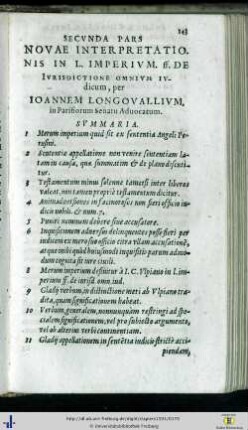 143
SECVNDA PARS
NOVAE INTERPRETATIO
NIS IN L. IMPERIVM. ff. DE
IVRISDICTIONE OMNIVM IV-
dicum, per
IOANNEM LONGOVALLIVM,
in Parisiorum Senatu Aduocatum.
SVMMARIA.
1 Merum imperium quid sit ex sententia Angeli Pe-
rusini.
2 Sententiæ appellatione non venire sententiam la-
tam in causa, quæ summatim & de plano discuti-
tur.
3 Testamentum minus solenne tametsi inter liberos
valeat, non tamen proprie testamentum dicitur.
4 Animaduersiones in facinorosos tum fieri officio iu-
dicis nobili. & num. 7.
5 Puniri neminem debere sine accusatore.
6 Inquisitionem aduersus delinquentes posse fieri per
iudicem ex mero suo officio citra vllam accusationem,
atque
dum cognita sit iure ciuili.
8 Merum imperium definitur à I.C. Vlpiano in l. im-
perium ff. de iurisd. omn. iud.
9 Gladij verbum, in distinctione meri ab Vlpiano tra-
dita, quam significationem habeat.
10 Verbum generale, nonnunquam restringi ad spe-
cialem significationem, vel pro subiecto argumento,
vel ob alterius verbi comitantiam.
11 Gladij appellationem in sententia indicii strictè acci-
piendam,
http://dl.ub.uni-freiburg.de/diglit/
© Universitätsbibliothek Freiburg